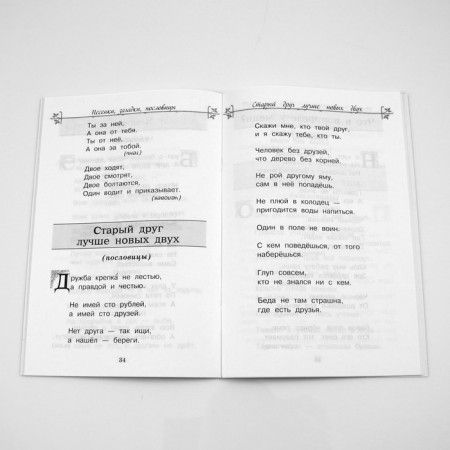 Песенки, загадки, пословицы
Ты за ней,
А она от тебя.
Ты от неё,
А она за тобой.
Двое ходят,
Двое смотрят,
Двое болтаются,
Один водит и приказывает.
Старый друг
лучше новых двух
(пословицы)
Дружба крепка́ не лестью,
а правдой и честью.
Не имей сто рублей,
а имей сто друзей.
Нет друга — так ищи,
а нашёл — береги.
34
Старый друг лучше новых двух
Скажи мне, кто твой друг,
и я скажу тебе, кто ты.
Человек без друзей,
что дерево без корней.
Не рой другому яму,
сам в неё попадёшь.
Не плюй в колодец —
пригодится воды напиться.
Один в поле не воин.
С кем поведёшься, от того
наберёшься.
Глуп совсем,
кто не знался ни с кем.
Беда не там страшна,
где есть друзья.